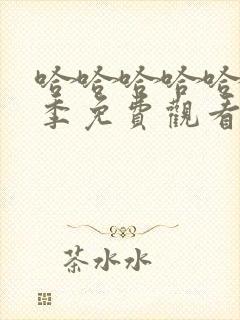 哈哈哈哈哈
季免費觀看
茶水水